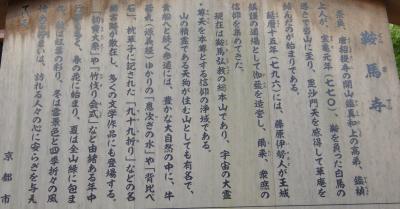 鞍馬寺
奈良・唐招提寺の開山鑑真和上の高弟、鑑禎
上人が、宝亀元年（七七〇）、鞍を負った白馬の
導きで当山に至り、毘沙門天を感得して草庵を
結んだのが始まりである。
延暦十五年（七九六）には、藤原伊勢人が王城
鎮護の道場として伽藍を造営し、爾来、衆庶の
信仰を集めてきた。
現在は鞍馬弘教の総本山であり、宇宙の大霊
・尊天を本尊とする信仰の浄域である。
山の精霊である天狗が住む山としても有名で、
貴船へと続く参道には、豊かな大自然の中に、牛
若丸（源義経）ゆかりの「息次ぎの水」や「背比べ
石」、枕草子に記された「九十九折り」などの名
勝古蹟が散在し、多くの文学作品にも登場する。
「初寅大祭」や「竹伐り会式」など由緒ある年中
行事も多く、春の花に始まり、夏は全山緑に包ま
れ、秋は紅葉の彩り、冬は雪景色と四季折々の風
訪れる人々の心に安らぎを与え
京都市